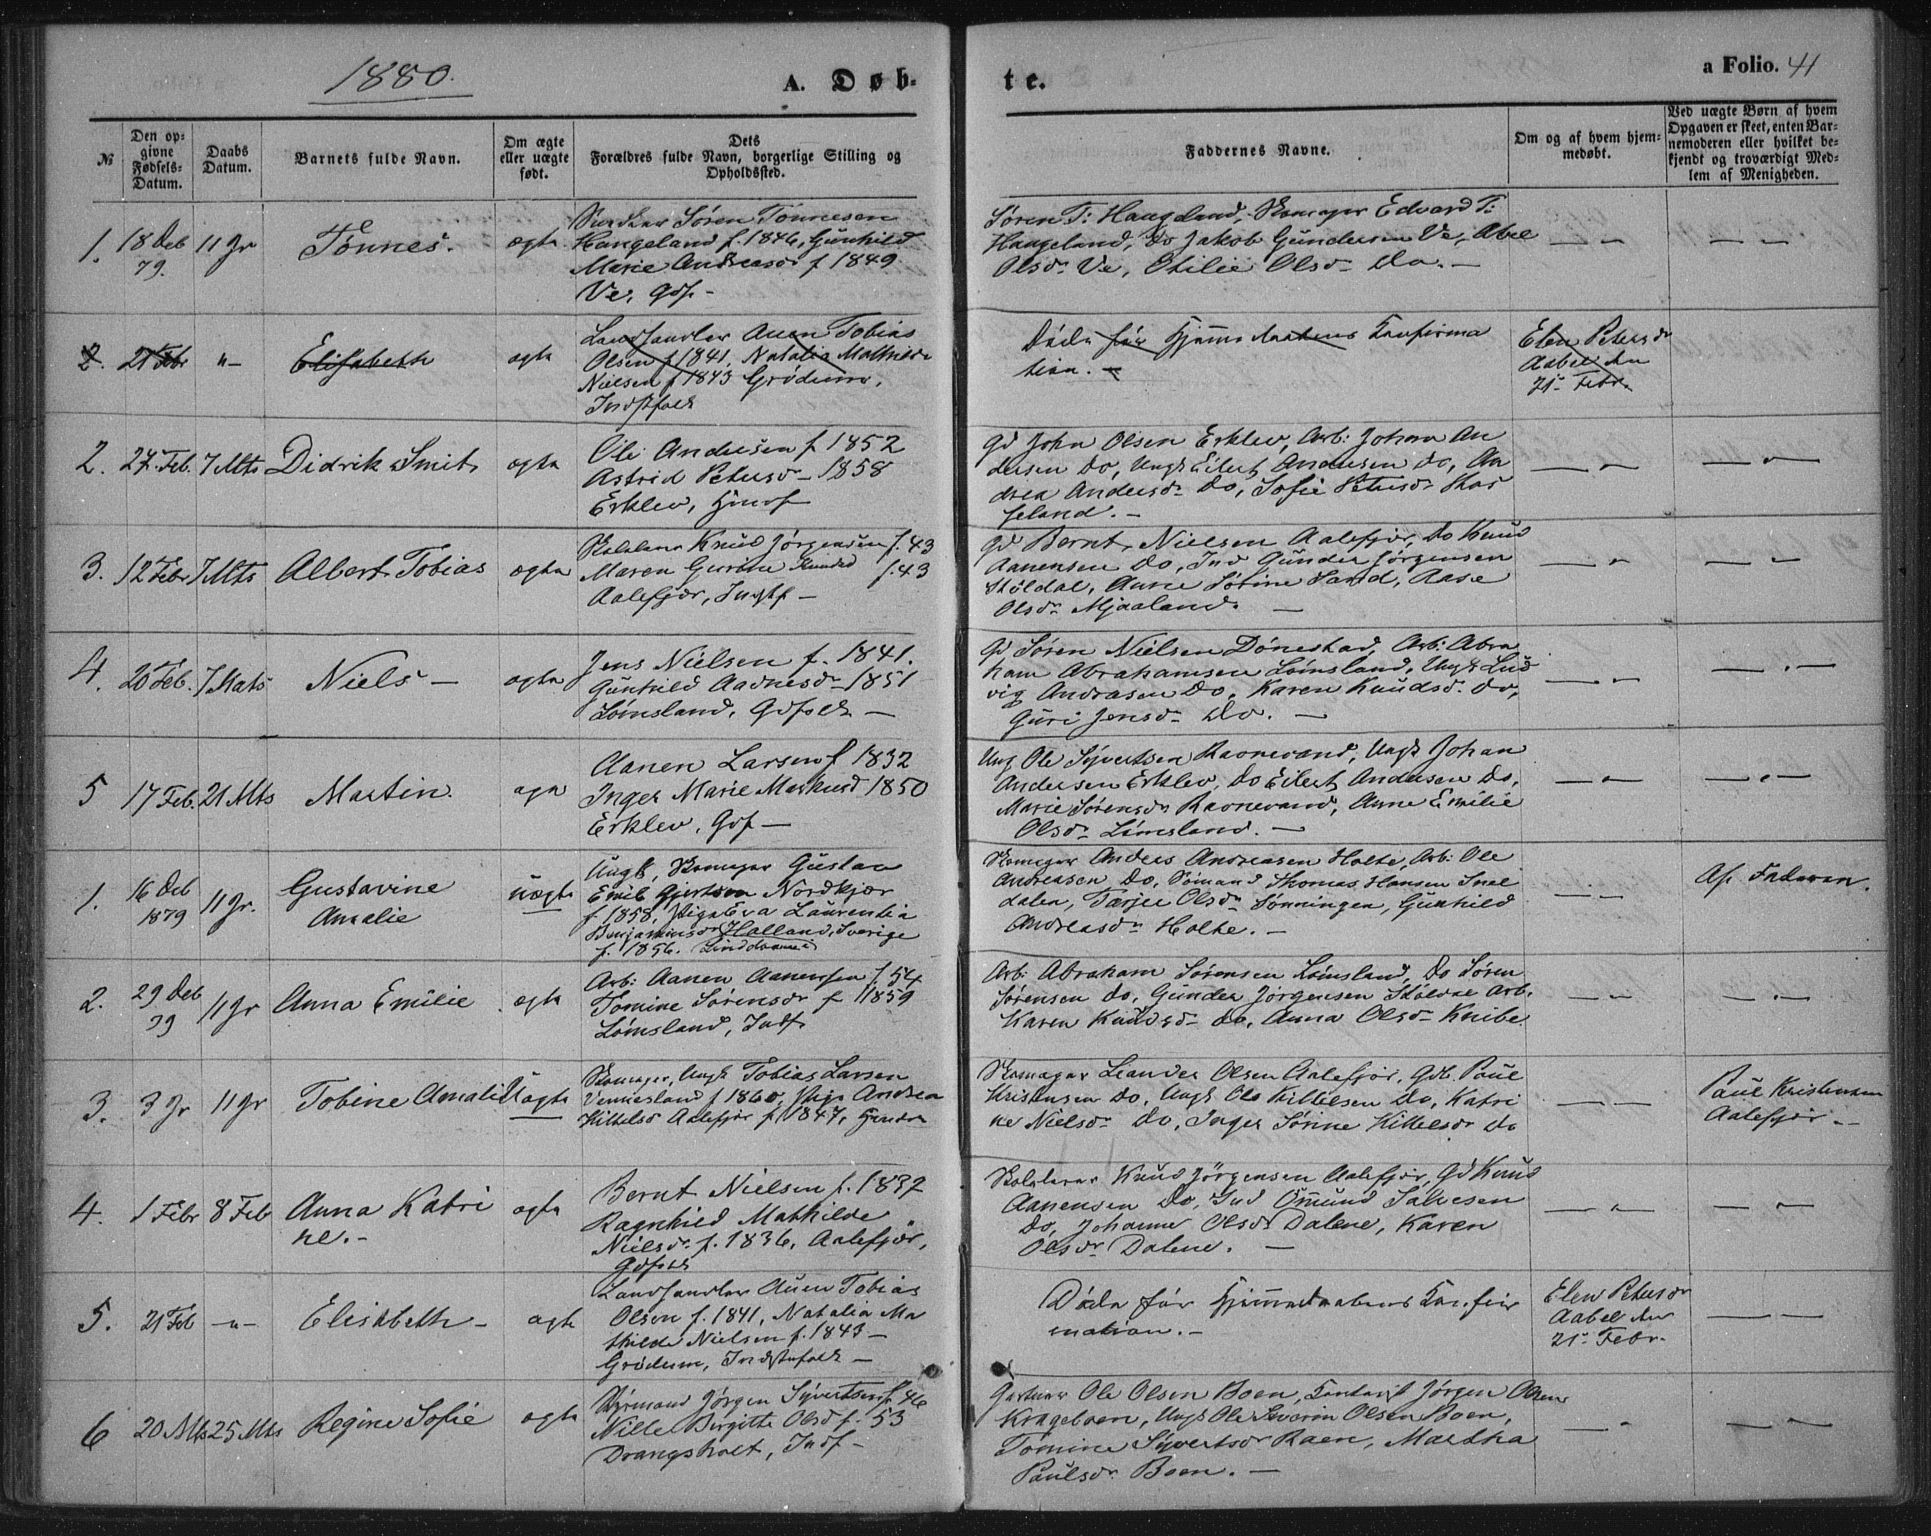 1880.
A. Døb-
te.
a Folio. 41
№
Den op-
givne
Fødsels-
Datum.
Daabs
Datum.
Barnets fulde Navn.
Om ægte
eller uægte
født.
Dets
Forældres fulde Navn, borgerlige Stilling og
Opholdssted.
Faddernes Navne.
Om og af hvem hjem-
medøbt.
Ved uægte Børn af hvem
Opgaven er skeet, enten Bar-
nemoderen eller hvilket be-
kjendt og troværdigt Med-
lem af Menigheden.
1.
18 Deb
79.
11 Jr
Tønnes.
ægte
Søren Tønnesen
Haugeland f. 1846, Gunhild
Marie Andreasdr f 1849.
Ve, Gdf -
Søren T: Haugeland, Skomager Edvard T:
Haugeland, Do Jakob Gundersen Ve, Abel
Olsdr Ve, Otilie Olsdr Do. -
2.
21 Febr
"-
Elisabeth
ægte
Landhandler Auen Tobias
Olsen f 1841, Natalia Mathilde
Nielsen f 1843 Grødum,
Indstfolk
Døde før Hjemmedaabens Konfirma
tion. -
Elen Petersdr
Aabel den
21 Febr.
2.
27 Feb.
7 Mts
Didrik Smit
ægte
Ole Andersen f 1852
Astrid Petersd - 1858
Erklev,
Gd John Olsen Erklev, Arb: Johan An
dersen Do, Ungk Eilert Andersen Do, An
drea Andersdr Do, Sofie Petersdr
feland. -
3.
12 Febr
7 Mts
Albert Tobias
ægte
Skolelærer Knud Jørgensen f. 43
Maren Gurine Knudsd f. 43
Aalefjær, Instf -
Gd Bernt Nielsen Aalefjær, Do Knud
Aanensen Do, Ind Gunder Jørgensen
Støldal, Anne Sørine Sand, Aase
Olsdr Mjaaland. -
4.
20 Feb.
7 Mats
Niels -
ægte
Jens Nielsen f. 1841.
Gunhild Aadnesdr - 1851
Lømsland, Gdfolk -
Gd Søren Nielsen Dønestad, Arb: Abra
ham Abrahamsen Lømsland, Ungk Lud
vig Andrasen Do, Karen Knudsdr Do,
Guri Jensdr Do. -
5
17 Feb.
21 Mts
Martin.
ægte
Aanen Larsen f 1832
Inger Marie Markusd 1850
Erklev, Gdf -
Ung Ole Syvertsen Ravnevand, Ungk Johan
Andersen Erklev, Do Eilert Andersen Do,
Marie Sørensdr Ravnevand, Anne Emilie
Olsdr Lømsland. -
1.
16 Deb
1879
11 Jr.
Gustavine
Amalie
uægte
Ungk, Skomager Gustav
Emil Gjertsen Nordkjær
f 1858, Pige Eva Laurentia
Benjaminsdr Halland, Sverige
f. 1856.
Skomager Anders Andreasen Holte, Arb: Ole
Andreasen Do, Sømand Thomas Hansen Snel
dalen, Tarjer Olsdr Sonningen, Gunhild
Andreasdr Holte. -
Af Faderen.
2.
29 Deb
79
11 Jr
Anna Emilie
ægte
Arb: Aanen Aanensen f. 54
Tomine Sørensdr f 1859
Lømsland, Indf
Arb: Abraham Sørensen Lømsland, Do Søren
Sørensen Do, Gunder Jørgensen Støldal Arb.
Karen Knudsdr Do, Anna Olsdr Knibe
3.
3 Jr
11 Jr
Tobine Amalie
Uægte
Skomager, Ungk Tobias Larsen
Vennesland f 1860, Pige Andrea
Kittelsd Aalefjær f. 1847,
Skomager Leander Olsen Aalefjær, Gdb. Paul
Kristensen Do, Ungk Ole Kittilsen Do, Katri
ne Nielsdr Do, Inger Sørine Kittelsdr Do
Paul Kristensen
Aalefjær. -
4.
1 Febr
8 Feb
Anna Katri
ne. -
ægte
Bernt Nielsen f. 1832
Ragnhild Mathilde
Nielsdr f. 1836, Aalefjær,
Gdfolk
Skolelærer Knud Jørgensen Aalefjær, Gd Knud
Aanensen Do, Ind Omund Salvesen
Do, Johanne Olsdr Dalene, Karen
Olsdr Dalene. -
5.
21 Feb
-"-
Elisabeth -
ægte
Landhandler Auen Tobias
Olsen f. 1841, Natalia Ma
thilde Nielsen f. 1843 -
Grødum, Indstfolk -
Døde før Hjemmedaabens Konfir
mation. -
Elen Petersdr
Aabel den
21 Febr.
6
20 Mts
25 Mts
Regine Sofie
ægte
Styrmand Jørgen Syvertsen f. 46
Nille Birgitte Olsd f. 53
Drangsholt, Indf -
Gartner Ole Olsen Boen, Jørgen Olsen
Krageboen, Ungk Ole Severin Olsen Boen,
Tomine Syvertsdr Raen, Martha
Paulsdr Boen. -